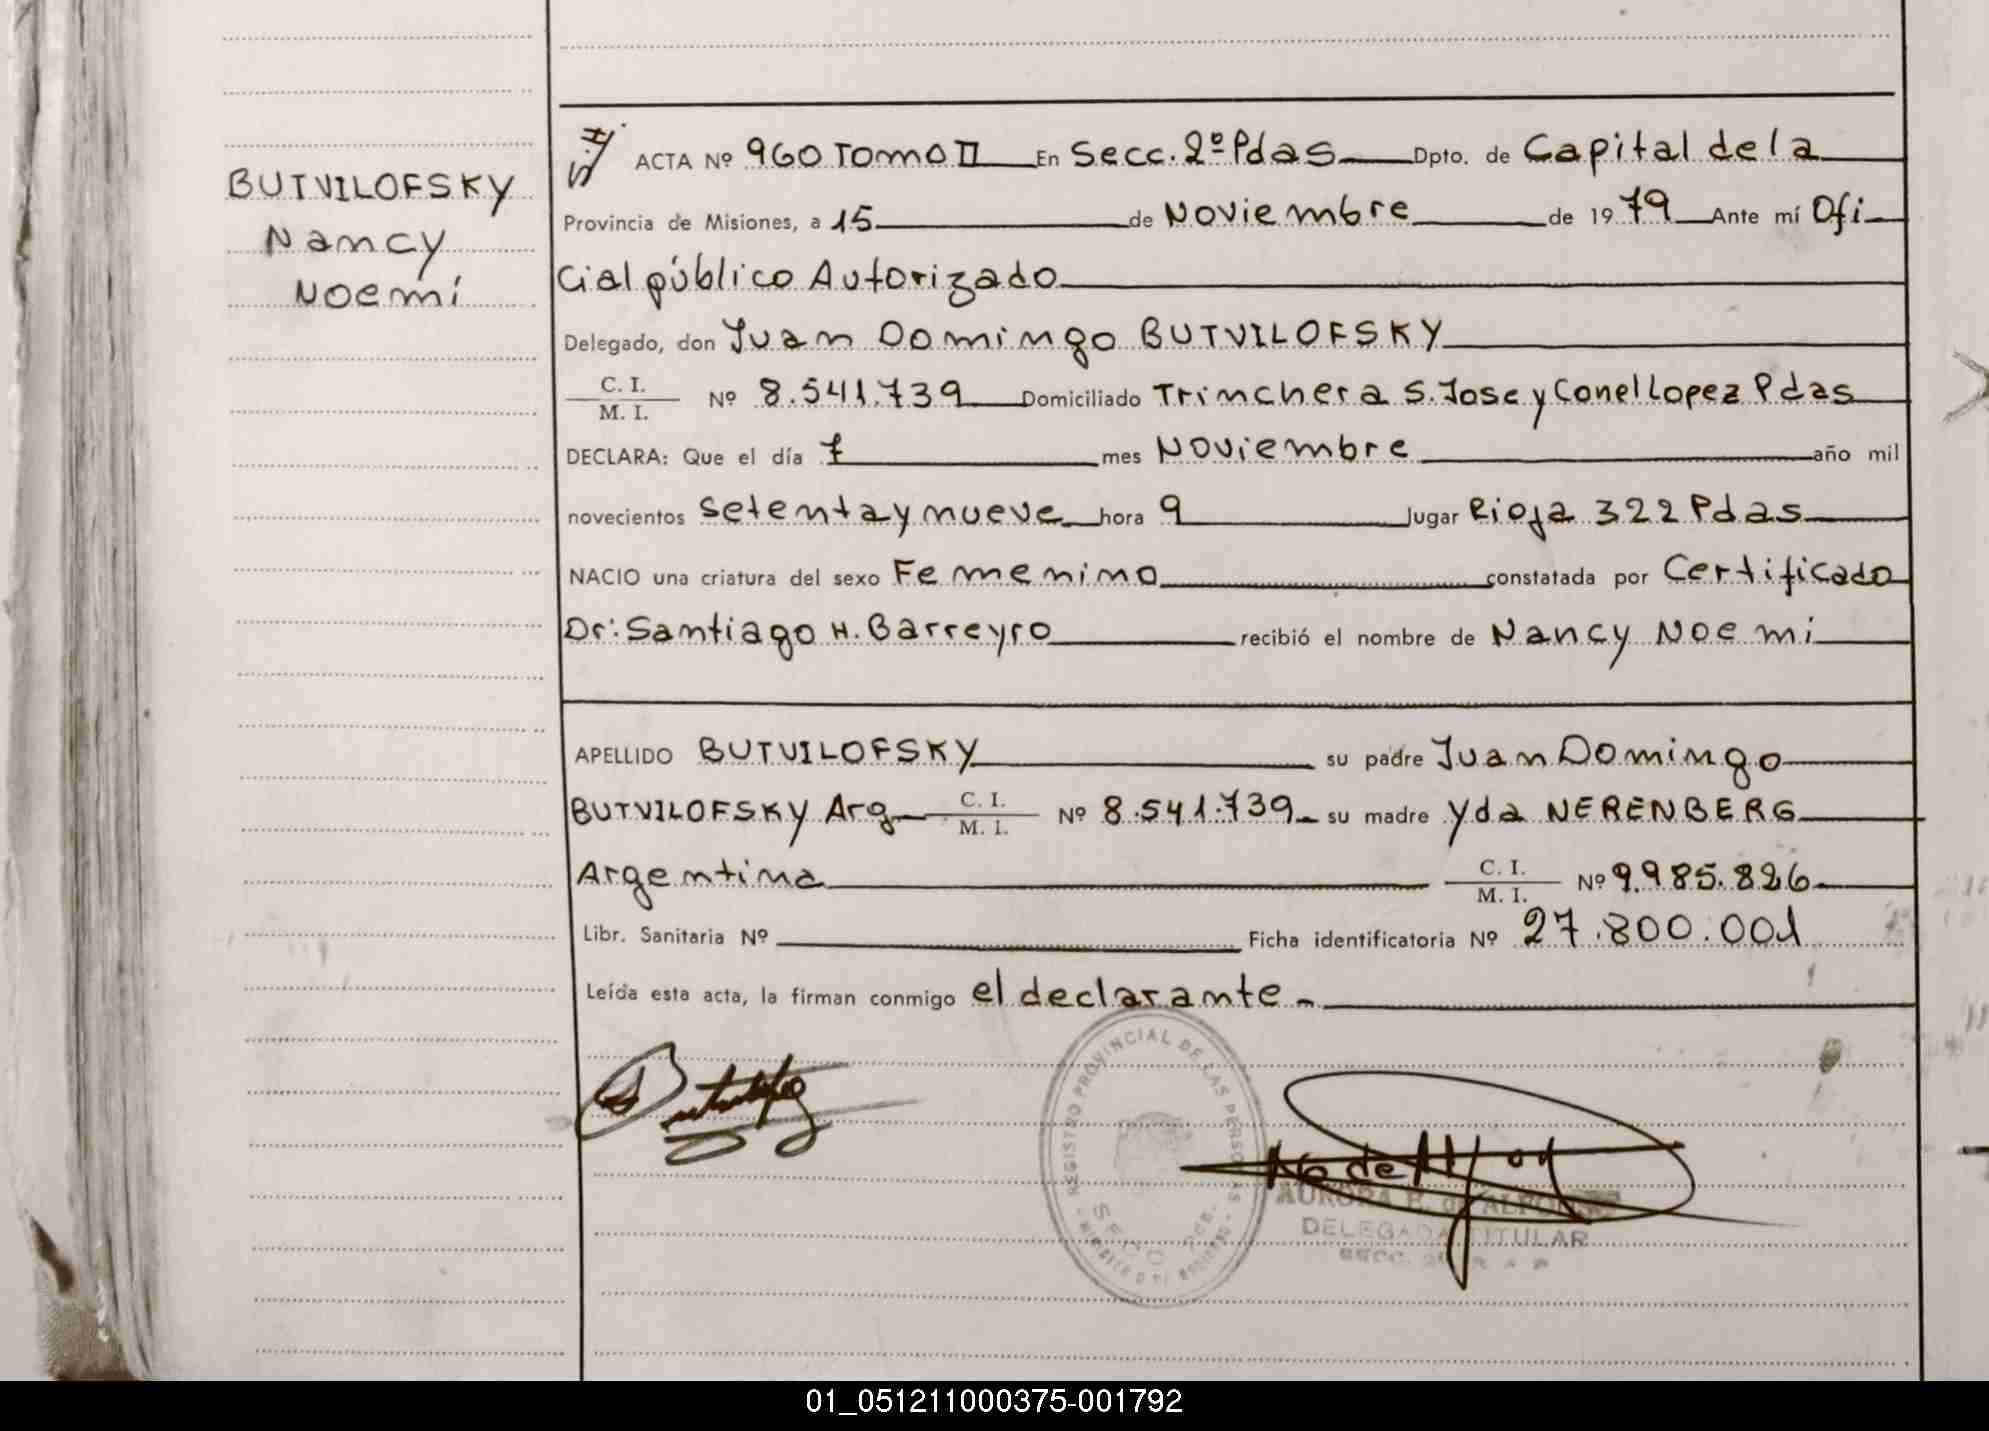 BUTVILOFSKY
Nancy
Noemí
ACTA Nº 960 Tomo II En Secc. 2º Pdas Dpto. de Capital de la
Provincia de Misiones, a 15 de Noviembre de 1979 Ante mí Ofi
cial público Autorizado
Delegado, don Juan Domingo BUTVILOFSKY
C. I.
M. I. Nº 8.541.739 Domiciliado Trinchera S. Jose y Conel Lopez Pdas
DECLARA: Que el día 7 mes Noviembre año mil
novecientos setenta y nueve hora 9 lugar Rioja 322 Pdas
NACIO una criatura del sexo Femenino constatada por Certificado
Dr: Santiago H. Barreyro recibió el nombre de Nancy Noemi
APELLIDO BUTVILOFSKY su padre Juan Domingo
BUTVILOFSKY Arg C. I. M. I. Nº 8.541.739 su madre Yda NERENBERG
Argentina C. I. M. I. Nº 9.985.826
Libr. Sanitaria Nº Ficha identificatoria Nº 27.800.001
Leída esta acta, la firman conmigo el declarante
REGISTRO PROVINCIAL DE LAS PERSONAS
SECC. 2da.
AURORA de
DELEGADA TITULAR
SECC.
01_051211000375-001792